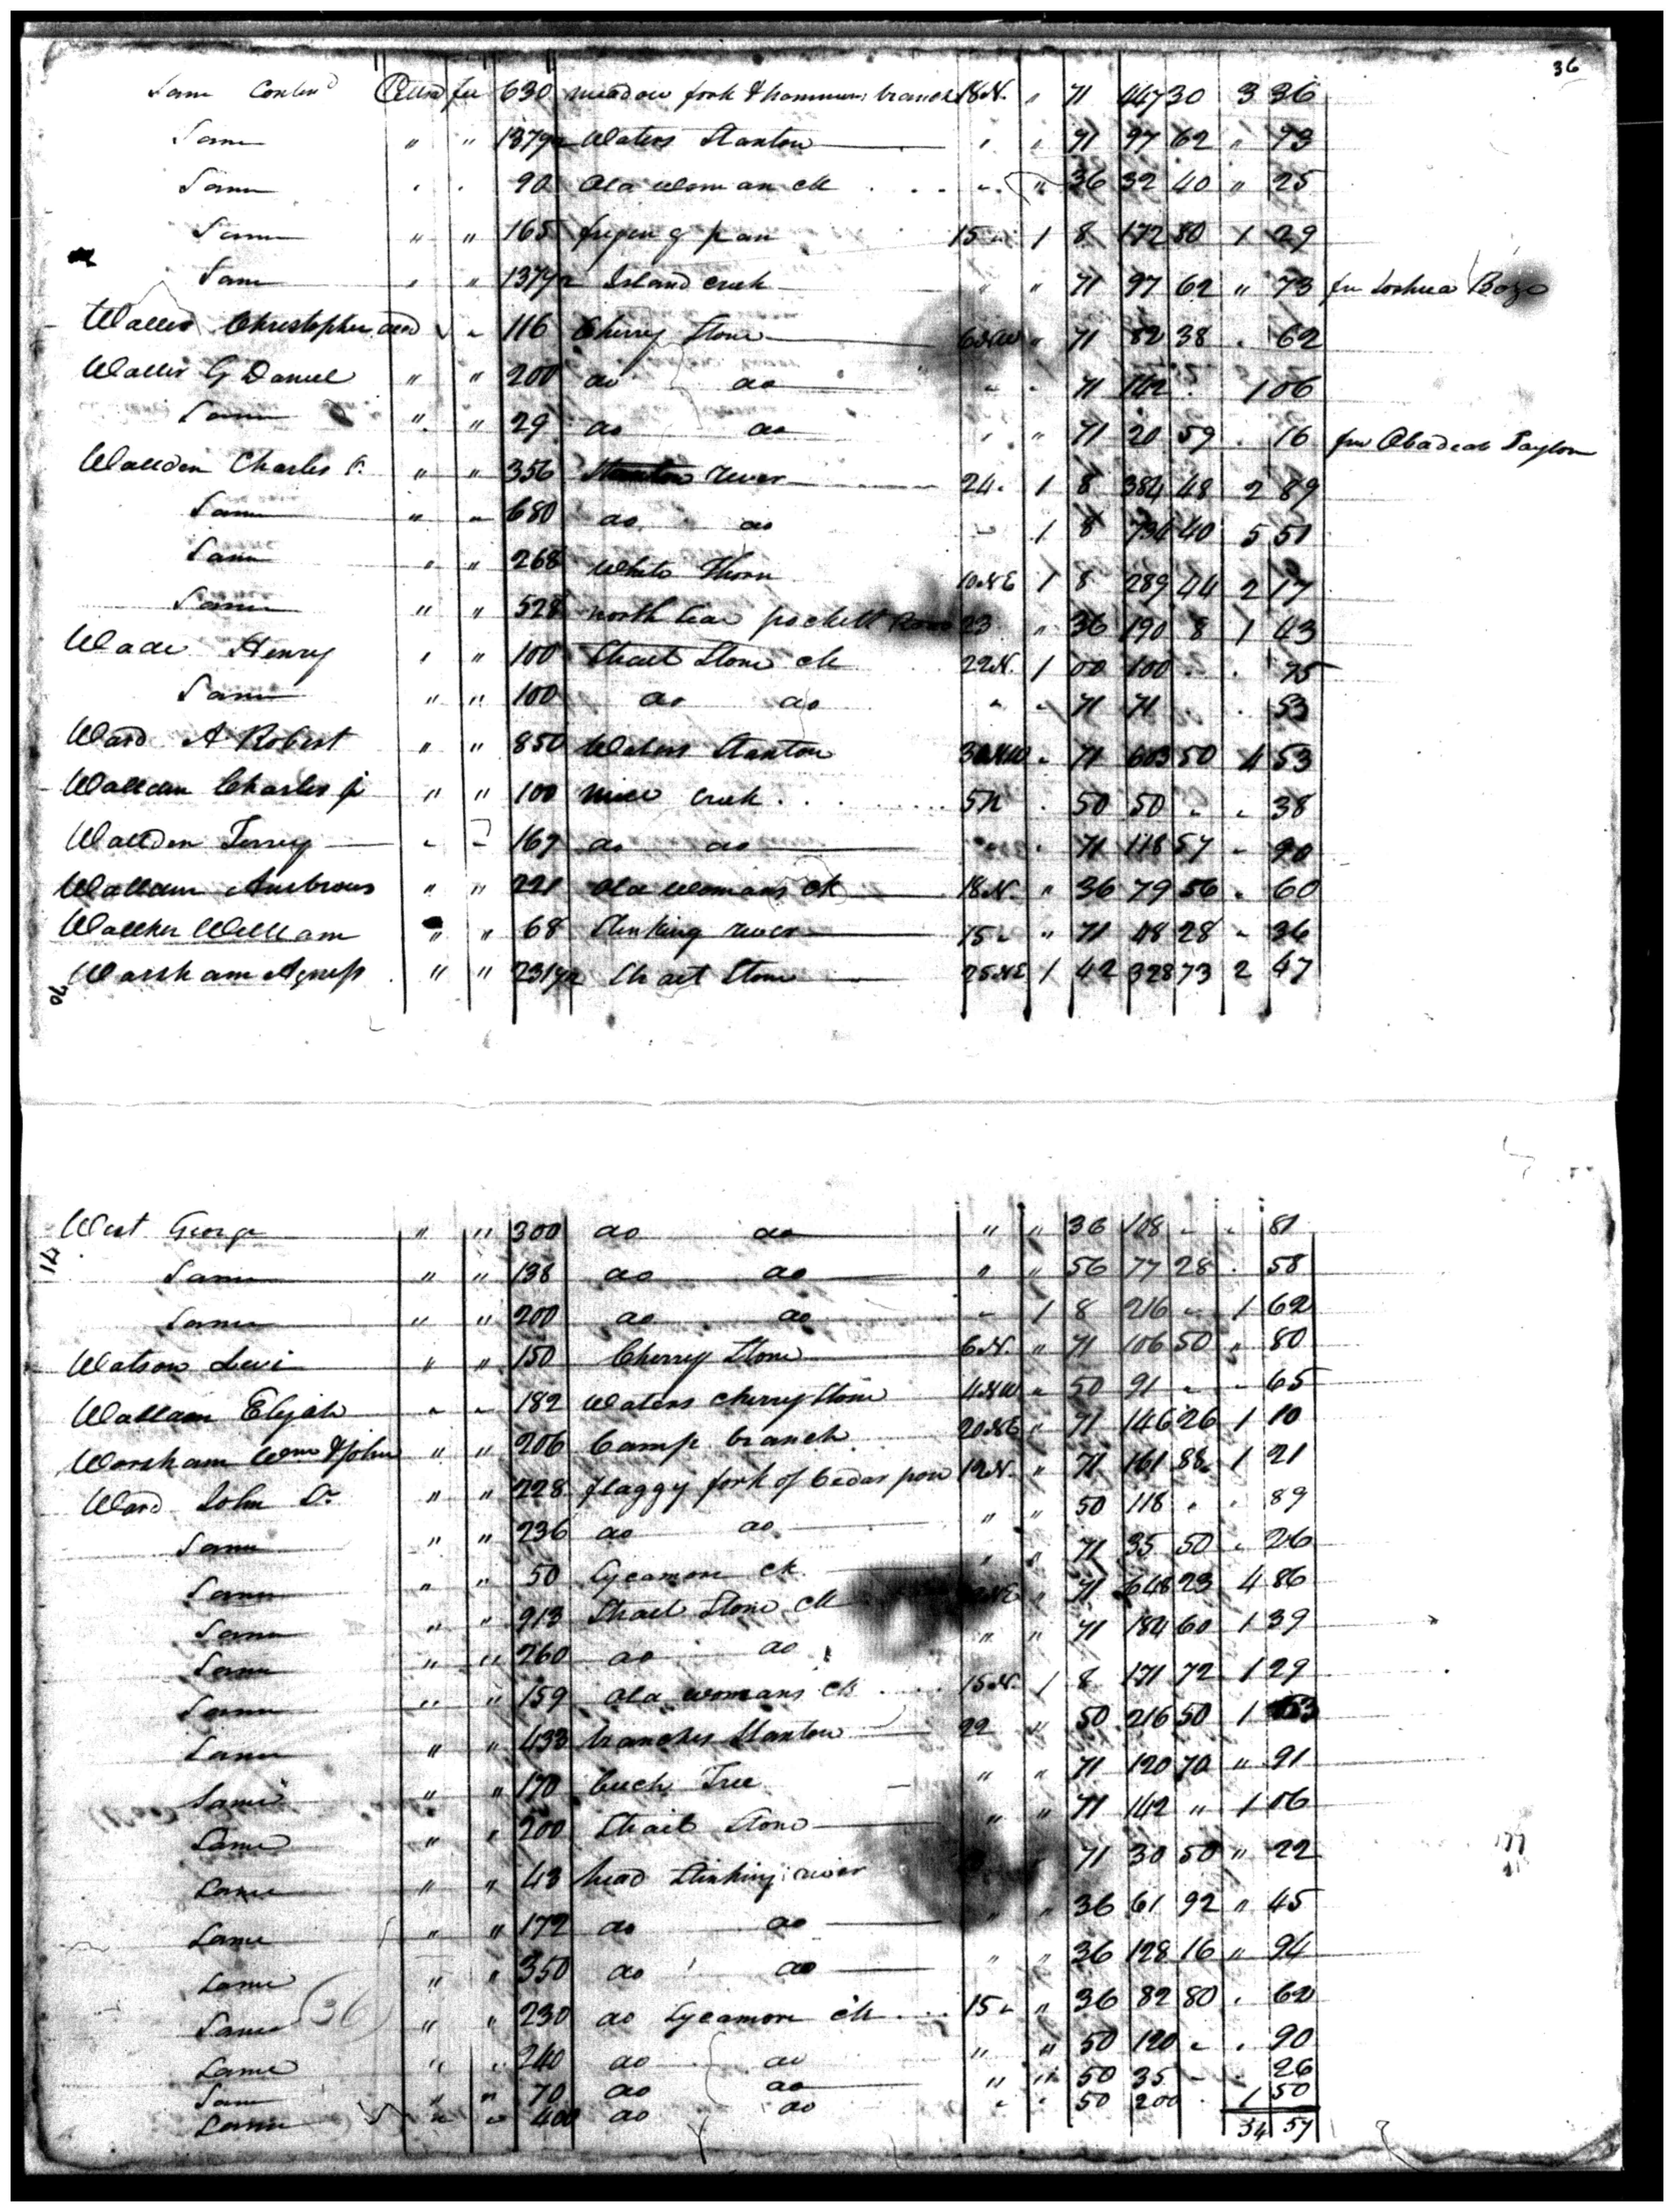 36
Same Contend Pittsa fee 630 meadow fork & hammers branch 18 N. " 71 447 30 3 36
Same " " 137 1/2 Waters Stanton " " 71 97 62 " 73
Same " " 90 Old woman ck " " 36 32 40 " 25
Same " " 165 frying pan 15 " 1 8 172 80 1 29
Same " " 137 1/2 Island creek " " 71 97 62 " 73 fm Joshua
Christopher " " 116 Cherry Stone 6 NW " 71 82 38 . 62
Wallis G Daniel " " 200 do do " . 71 142 . 1 06
Same " " 29 do do " " 71 20 59 . 16 fm Obadiah Taylor
Charles " " 356 Stanton river 24 . 1 8 384 48 2 89
Same " " 680 do do " 1 8 734 40 5 51
Same " " 268 White Thorn 10 NE 1 8 289 44 2 17
Same " " 528 north side pocket 23 " 36 190 8 1 43
Wade Henry " " 100 Strait Stone ck 22 N. 1 00 100 . . 75
Same " " 100 do do " " 71 71 . . 53
Ward A Robert " " 850 Waters Stanton NW " 71 603 50 4 53
Charles " " 100 mill creek 5 N . 50 50 " " 38
" " 167 do do . 71 118 57 " 90
" " 221 Old womans ck 18 N. " 36 79 56 " 60
Walker William " " 68 Stinking river 15 " " 71 48 28 " 36
Warsham Agness " " 231 1/2 Strait Stone 25 NE 1 42 328 73 2 47
West George " " 300 do do " " 36 108 " " 81
Same " " 138 do do " " 56 77 28 . 58
Same " " 200 do do " 1 8 216 " 1 62
Watson Levi " " 150 Cherry Stone 6 N. " 71 106 50 " 80
Elijah " " 182 Waters cherry Stone 4 NW " 50 91 " " 65
Worsham Wm & John " " 206 Camp branch 20 NE " 71 146 26 1 10
Ward John Sr " " 228 flaggy fork of Cedar 12 N. " 71 161 88 1 21
Same " " 236 do do " " 50 118 . . 89
Same " " 50 Sycamore ck " " 71 35 50 " 26
Same " " 913 Strait Stone ck NE " 71 648 23 4 86
Same " " 260 do do " " 71 184 60 1 39
Same " " 159 Old womans ck 15 N. 1 8 171 72 1 29
Same " " 433 branches Stanton 22 " 50 216 50 1
Same " " 170 Tree " " 71 120 70 " 91
Same " " 200 Strait Stone " " 71 142 " 1 06
Same " " 43 head Stinking river " 71 30 50 " 22
Same " " 172 do do " " 36 61 92 " 45
Same " " 350 do do " " 36 128 16 " 94
Same (36) " " 230 do Sycamore ck 15 " " 36 82 80 . 62
Same " " 240 do do " " 50 120 " . 90
Same " " 70 do do " " 50 35 " . 26
Same " " 400 do do " " 50 200 . 1 50
34 57